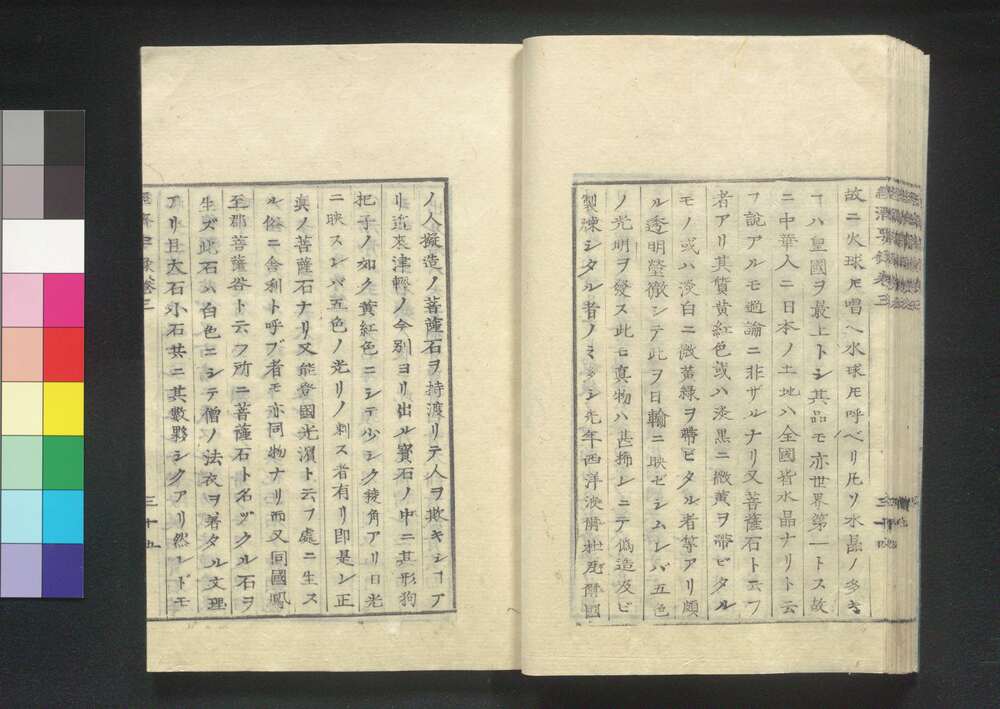 經濟要錄卷三
故ニ火球𪜈唱ヘ水球𪜈呼ベリ凡ソ水晶ノ多キ
ヿハ皇國ヲ最上トシ其品モ亦世界第一トス故
ニ中華人ニ日本ノ土地ハ全國皆水晶ナリト云
フ說アルモ過論ニ非ザルナリ又菩薩石ト云フ
者アリ其質黄紅色或ハ淡黒ニ微黄ヲ帶ビタル
モノ或ハ淡白ニ微黄綠ヲ帶ビタル者等アリ頗
ル透明瑩徹シテ此ヲ日輪ニ映ゼシムレバ五色
ノ光明ヲ發ス此モ真物ハ甚稀レニテ偽造及ビ
製煉シタル者ノミ多シ先年西洋波爾杜瓦爾國
三十四
ノ人擬造ノ菩薩石ヲ持渡リテ人ヲ欺キシヿア
リ近來津輕ノ今別ヨリ出ル寶石ノ中ニ其形狗
把子ノ如ク黄紅色ニシテ少シク稜角アリ日光
ニ映スレバ五色ノ光リノ刺ス者有リ即是レ正
真ノ菩薩石ナリ又能登國光濵ト云フ處ニ生ス
ル俗ニ舎利ト呼ブ者モ亦同物ナリ而又同國鳳
至郡菩薩谷ト云フ所ニ菩薩石ト名ヅクル石ヲ
生ズ此石ハ白色ニシテ僧ノ法衣ヲ著タル文理
アリ且大石小石共ニ其數夥シクアリ然レドモ
經濟要錄卷三
三十五